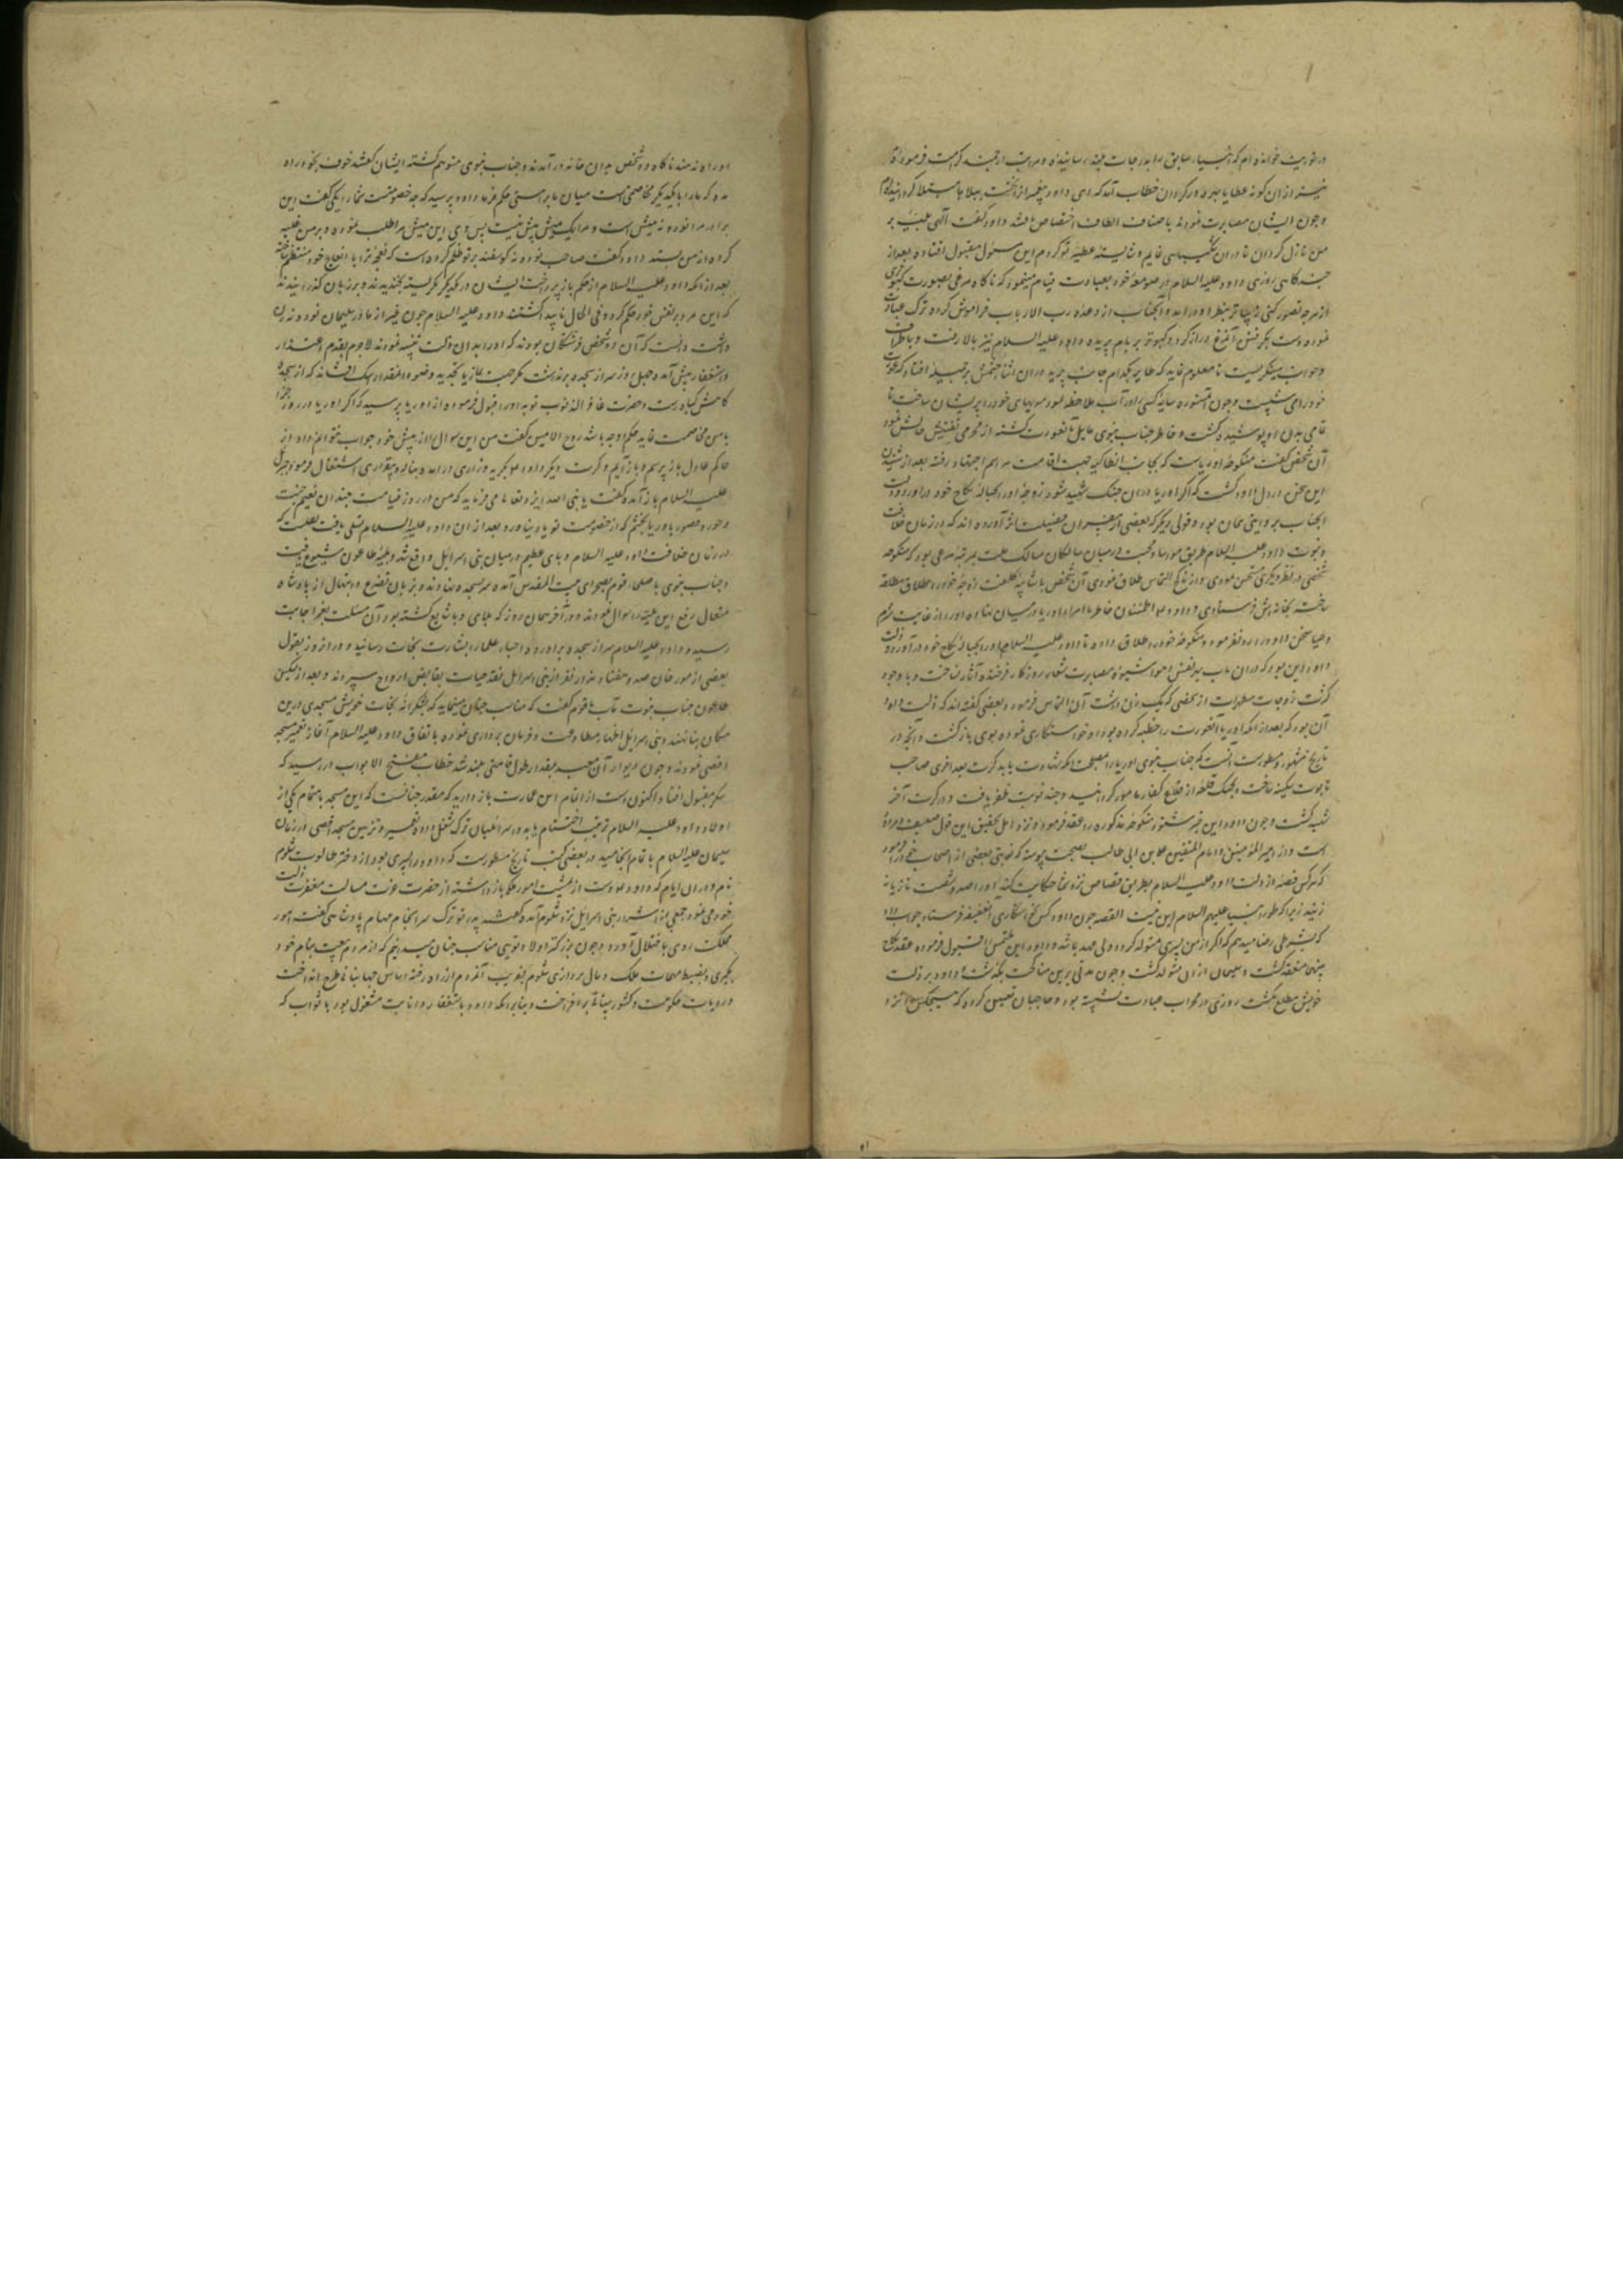 در توریت خوانده‌ام که انبیاء سابق را بدرجات بلند رسانیده و مراتب ارجمند کرامت فرموده
نیز از ان کونه عطایا بهره‌ور کردان خطاب آمد که ای داود پیغمبران را نخست ببلا مبتلا کردانیدم
و چون ایشان مصابرت نمودند باصناف الطاف اختصاص یافتند داود کفت الهی بلیه بر
من نازل کردان تا در ان شکیبایی نمایم و شایسته عطیه تو کردم این مسئول مقبول افتاده بعد از
چند کاهی روزی داود علیه السلام در صومعه خود بعبادت قیام مینمود که ناکاه مرغی بصورت کبوتری
از هرچه تصور کنی زیباتر بنظر او درامد و آنجناب از وعده رب الارباب فراموش کرده ترک عبادت
نموده دست بکرفتن آن مرغ دراز کرد و کبوتر بر بام پریده داود علیه السلام نیز بالا رفت و باطراف
و جوانب مینکریست تا معلوم نماید که طایر بکدام جانب پریده در ان اثنا چشمش بر جمیله افتاد که عورت
خود را می شست و چون مستوره سایه کسی را در آب ملاحظه نمود مویهای خود را پریشان ساخت تا
تمامی بدن او پوشیده کشت و خاطر جناب نبوی مایل بآن عورت کشته از محرمی تفتیش حالش نمود
آن شخص کفت منکوحه اوریاست که بجانب انطاکیه جهت اقامت مراسم اجتهاد رفته بعد از شنیدن
این سخن در دل داود کشت که اکر اوریا در ان جنک شهید شود زوجه او را بحباله نکاح خود در اورد و زلت
آنجناب بروایتی همان بود و قولی دیکر که بعضی از مفسران فضیلت اثر آورده‌اند که در زمان خلافت
و نبوت داود علیه السلام طریق مواسا و محبت در میان سالکان مسالک ملت بمرتبه مرعی بود که منکوحه
شخصی در نظر دیکری مستحسن نمودی و از ناکح التماس طلاق نمودی آن شخص بی شایبه کلفت زوجه خود را مطلقه
ساخته بخانه‌اش فرستادی و داود اطمینان خاطر با امراء اوریا در میان نهاده او را از غایت شرم
و حیا سخن داود را رد نفرموده منکوحه خود را طلاق داده تا داود علیه السلام او را بحباله نکاح خود در آورد و زلت
داود این بود که در ان باب بر نفس خود شیوه مصابرت شعار روزکار فرخنده آثار نساخت و با وجود
کثرت زوجات مطهرات از شخصی که یک زن داشت آن التماس فرمود و بعضی کفته‌اند که زلت داود
آن بود که بعد از انکه اوریا آن عورت را خطبه کرده بود او خواستکاری نموده بوی بازکشت و آنچه در
تاریخ مشهور و مسطور است آنست که جناب نبوی اوریا را مصلحت انکه شهادت یابد کرت بعد اخری صاحب
تابوت سکینه ساخت و بجنک قلعه از قلاع کفار مامور کردانید و چند نوبت ظفر یافت و در کرت آخر
شهید کشت و چون داود این خبر شنود منکوحه مذکوره را عقد فرمود و نزد اهل تحقیق این قول ضعیف و مردود
است و از امیر المؤمنین و امام المتقین علی بن ابی طالب بصحت پیوسته که نوبتی بعضی از اصحاب خود را فرمود
که هر کس قصه زلت داود علیه السلام بطریق قصاص نزد شما حکایت کند او را صد و شصت تازیانه
زنید زیرا که طور انبیا علیهم السلام این نیست القصه چون داود کس بخواستکاری آن عفیفه فرستاد جواب داد
که بشرطی رضا میدهم که اکر از من پسری متولد کردد ولی عهد باشد و داود این ملتمس را قبول فرموده عقد نکاح
بینهما منعقد کشت و سلیمان از ان متولد کشت و چون مدتی برین مناکحت بکذشت و داود بر زلت
خویش مطلع نکشت روزی در محراب عبادت نشسته بود و حاجبان تعیین کرده که هیچکس را نزد
او راه ندهند ناکاه دو شخص بدان خانه در آمدند و جناب نبوی متوهم کشته ایشان کفتند خوف بخود راه
مده که ما را با یکدیکر مخاصمتی است میان ما براستی حکم فرما داود پرسید که چه خصومتست شما را یکی کفت این
برادر مرا نود و نه میش است و مرا یک میش بیش نیست پس وی این میش مرا طلب نموده و بر من غلبه
کرده از من بستد داود کفت صاحب نود و نه کوسفند بر تو ظلم کرده است که نعجه ترا با نعاج خود منتظم ساخته
بعد از انکه داود علیه السلام از حکم باز پرداخت ایشان در یکدیکر نکریسته بخندیدند و بر زبان کذرانیدند
که این مرد بر نفس خود حکم کرد و فی الحال ناپیدا کشتند داود علیه السلام چون غیر از مادر سلیمان نود و نه زن
داشت دانست که آن دو شخص فرشتکان بودند که او را بدان حرکت تنبیه نمودند لاجرم بقدم اعتذار
و استغفار پیش آمد و چهل روز سر از سجده برنداشت مکر جهت نماز یا تجدید وضو و آنمقدار اشک افشاند که از سجده
کاهش کیاه رست و حضرت غافر الذنوب توبه او را قبول فرموده از اوریا پرسید که اکر اوریا در روز جزا
با من مخاصمت نماید حکم او چه باشد روح الامین کفت من این سوال را از پیش خود جواب نتوانم داد از
حاکم عادل باز پرسم و باز آیم و کرت دیکر داود بکریه و زاری درامده بناله و بیقراری اشتغال فرمود و جبرئیل
علیه السلام باز آمد و کفت یا نبی الله ایزد تعالی می فرماید که من در روز قیامت چندان نعیم جنت
و حور و قصور باوریا بخشم که از خصومت تو یاد نیاورد بعد از ان داود علیه السلام تسلی یافت نقلست که
در زمان خلافت داود علیه السلام وبای عظیم در میان بنی اسرائیل واقع شد و بلیه طاعون شیوع یافت
و جناب نبوی با صلحاء قوم بصحرای بیت المقدس آمده سر بسجده نهادند و بزبان تضرع و ابتهال از پادشاه
متعال رفع این بلیه را سوال نمودند و در آخر همان روز که بلای وبا شایع کشته بود آن مسئلت بعز اجابت
رسید و داود علیه السلام سر از سجده برآورده احبا و علما را بشارت نجات رسانید و در انروز بقول
بعضی از مورخان صد و هفتاد هزار نفر از بنی اسرائیل نقد حیات بقابض ارواح سپردند و بعد از تسکین
طاعون جناب نبوت مآب با قوم کفت که مناسب چنان مینماید که بشکرانه نجات خویش مسجدی درین
مکان بنا نهند و بنی اسرائیل اظهار مطاوعت و فرمان برداری نموده باتفاق داود علیه السلام آغاز تعمیر مسجد
اقصی نمودند و چون دیوار آن مسجد بمقدار طول قامتی بلند شد خطاب مفتح الابواب در رسید که
شکر مقبول افتاد اکنون دست از اتمام این عمارت باز دارید که مقدر چنانست که این مسجد باهتمام یکی از
اولاد داود علیه السلام زینت اختتام یابد و اسرائیلیان ترک شغل داده تعمیر و تزیین مسجد اقصی در زمان
سلیمان علیه السلام باتمام انجامید در بعضی کتب تاریخ مسطورست که داود را پسری بود از دختر طالوت شلوم
نام و در ان ایام که داود دست از تمشیت امور ملک باز داشته از حضرت عزت مسالت مغفرت زلت
خود می نمود جمعی از اشرار بنی اسرائیل نزد شلوم آمده کفتند پدر تو ترک سرانجام مهام پادشاهی کفت امور
مملکت روی باختلال آورد و چون بزرکتر اولاد توئی مناسب چنان میدانیم که از مردم بیعت بنام خود
بکیری و بضبط مهمات ملک و مالی پردازی شلوم بفریب آن مردم از راه رفته اساس مهابا ناطرح انداخت
و رایات حکومت و کشورستانی برافراخت و بنابرانکه داود باستغفار و انابت مشغول بود باثواب که